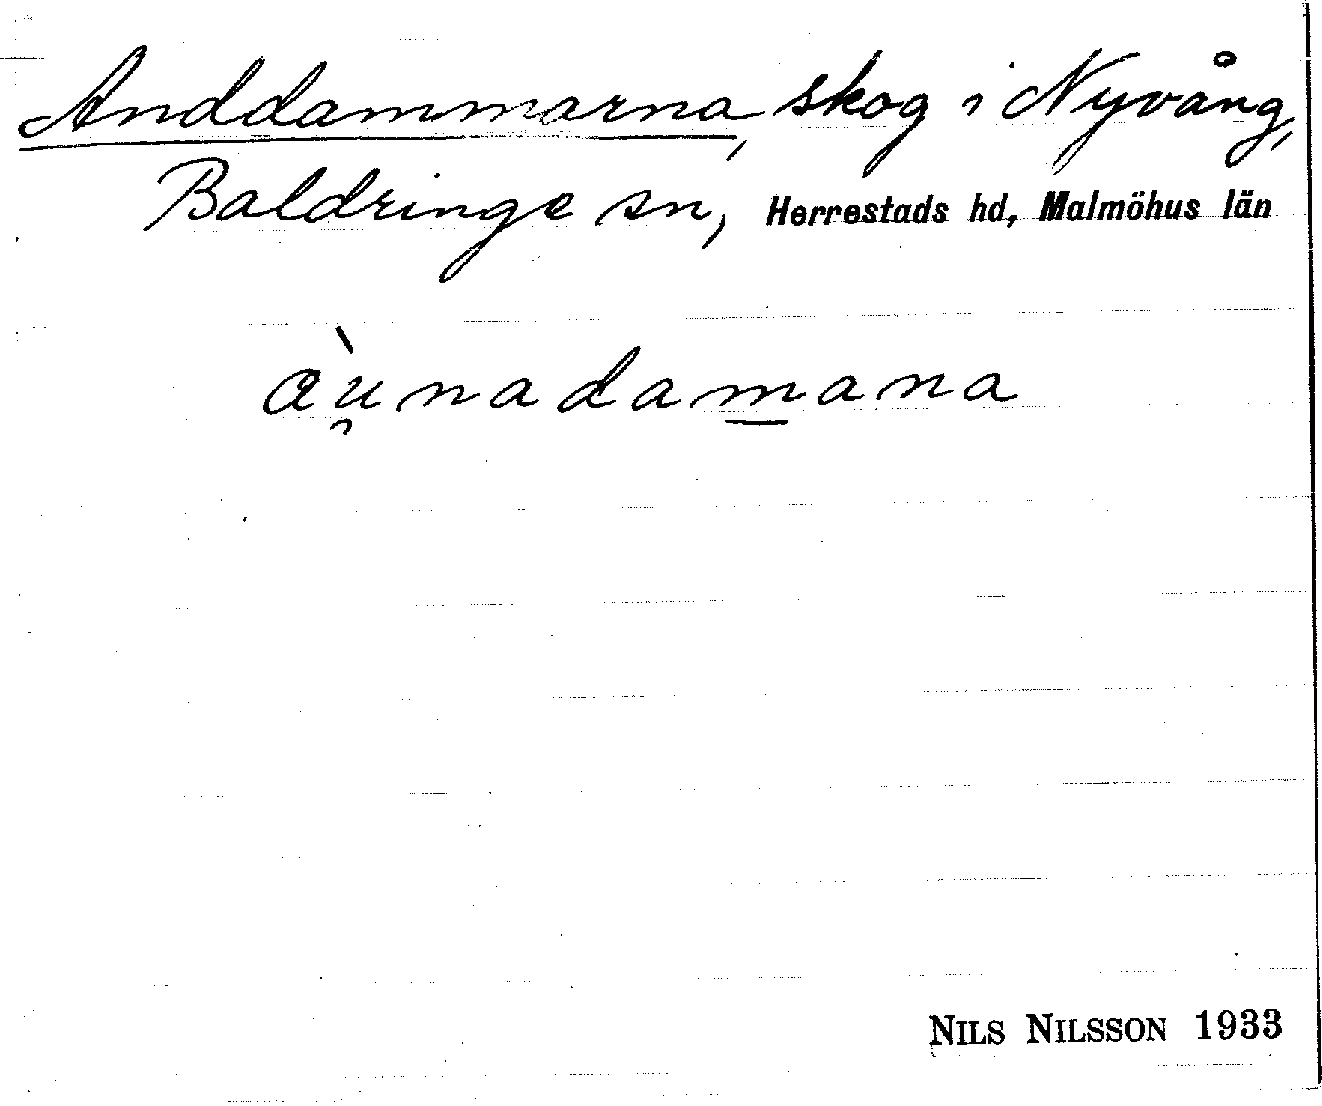 Anddammarna, skog i Nyvång,
Baldringe sn, Herrestads hd, Malmöhus län
æ̀u̯nadam̲ana
NILS NILSSON 1933